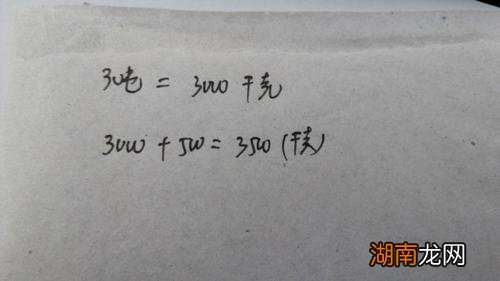 3吨 = 3000 千克
3000 + 500 = 3500 (千克)
湖南龙网